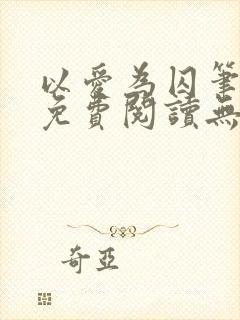 以愛為囚筆
免費閱讀無
奇亞